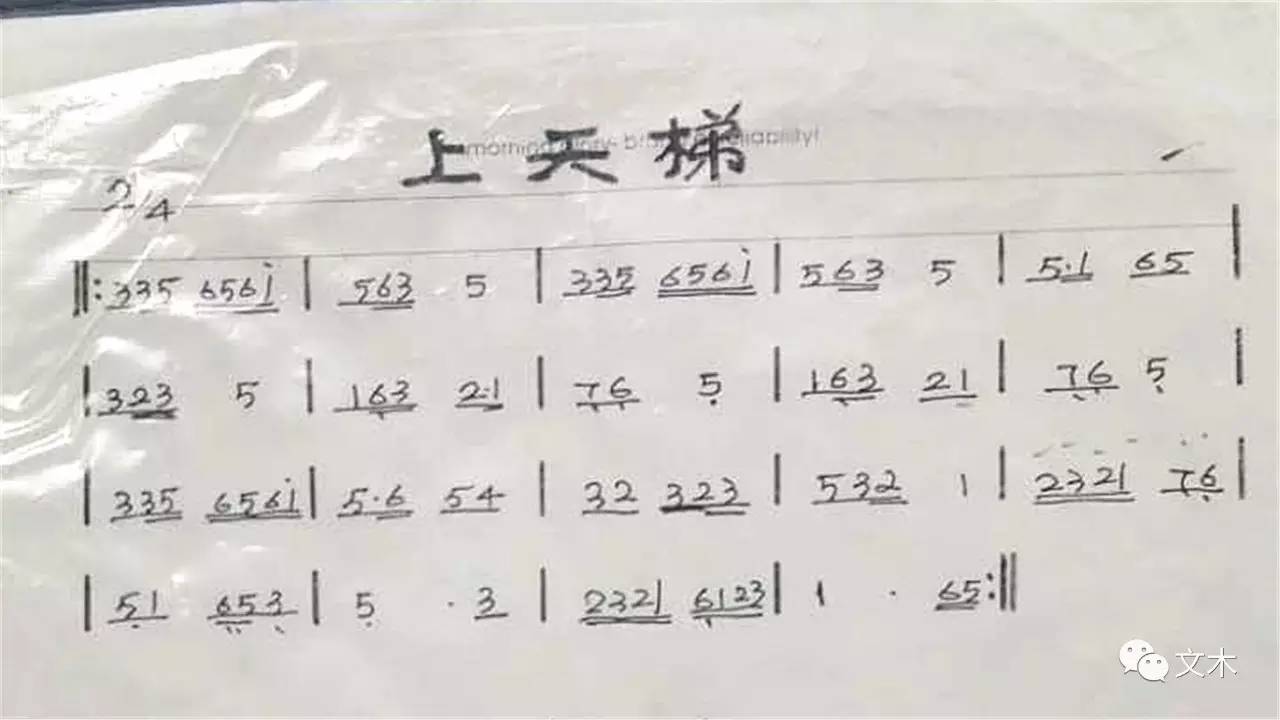 上天梯
2/4
‖: 335 656i | 563 5 | 335 656i | 563 5 | 5·1 65 |
| 323 5 | 163 2·1 | 76 5 | 163 21 | 76 5 |
| 335 656i | 5·6 54 | 32 323 | 532 1 | 2321 76 |
| 51 653 | 5 · 3 | 2321 6123 | 1 · 65 :‖
文木